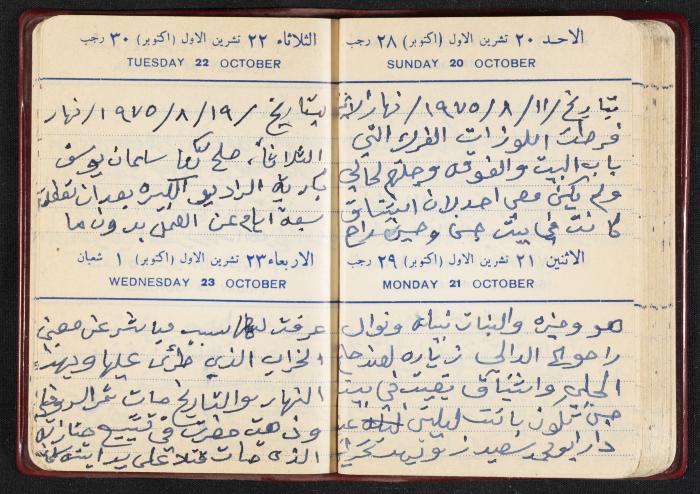 الاحد ٢٠ تشرين الاول (اكتوبر) ٢٨ رجب
SUNDAY 20 OCTOBER
بتاريخ /١١/ ٨ /١٩٧٥/ نهار
فرطت اللوزات الفرك التي
باب البيت والفوقه وجلتهم لحالي
ولم يكن معي احد لان اشتياق
كانت في بيت حسن وحين راح
الاثنين ٢١ تشرين الاول (اكتوبر) ٢٩ رجب
MONDAY 21 OCTOBER
هو والبنات نبيله ونوال
راحو الى الدالي زياره
واشتياق بقيت في بيت
حسن تكون باتت ليلتين
دار ابو
الثلاثاء ٢٢ تشرين الاول (اكتوبر) ٣٠ رجب
TUESDAY 22 OCTOBER
بتاريخ /١٩/ ٨ /١٩٧٥/ نهار
الثلاثاء صلح سلمان يوسف
الراديو الكبيره بعد ان تعطلت
سبعة ايام عن العمل بدون ما
الاربعاء ٢٣ تشرين الاول (اكتوبر) ١ شعبان
WEDNESDAY 23 OCTOBER
عرفت لها سبب مباشر عن معنى
الخراب الذي طرئ عليها وبهذا
النهار والتاريخ مات
وذهبت حضرت في تشييع جنازته
الذي مات قتلا على يد